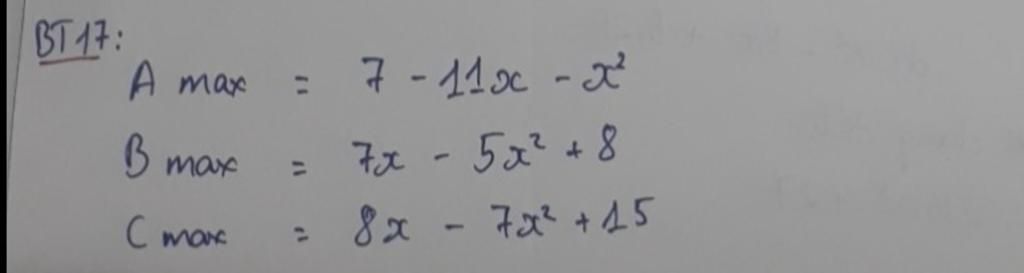 BT17:
A max = 7 - 11x - x²
B max = 7x - 5x² + 8
C max = 8x - 7x² + 15